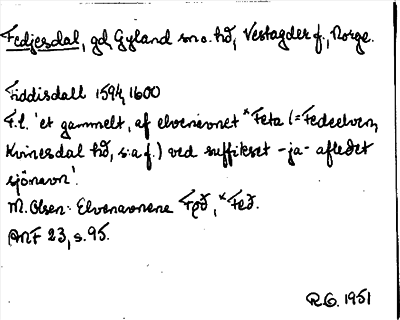 Fedjesdal, gd, Gyland sn. o. hd, Vestagder f., Norge.
Fiddisdall 1594, 1600
F.l. 'et gammelt, af elvenavnet *Feta (= Fedeelven,
Kvinesdal hd, s. a. f.) ved suffikset -ja- afledet
sjönavn'.
M. Olsen: Elvenavnene Fǫð, *Feð.
ANF 23, s. 95.
R.G. 1951